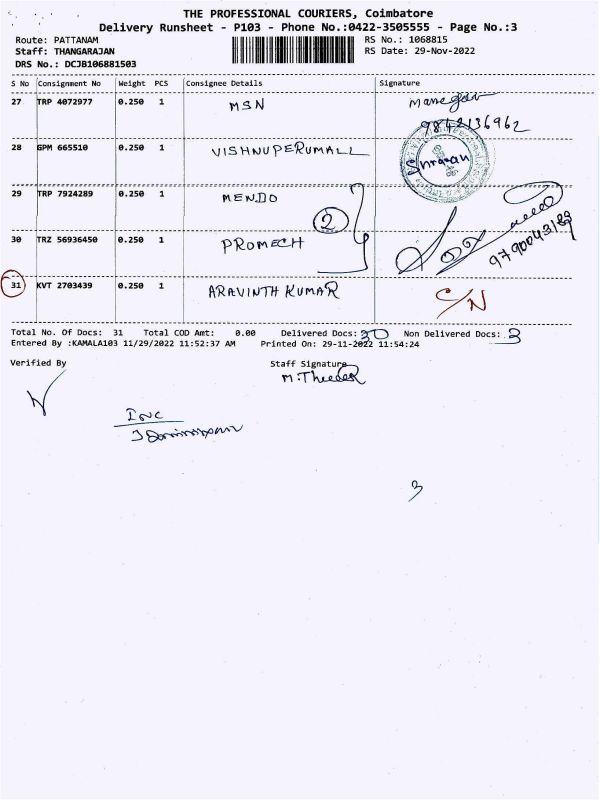 THE PROFESSIONAL COURIERS, Coimbatore
Delivery Runsheet - P103 - Phone No.:0422-3505555 - Page No.:3
Route: PATTANAM RS No.: 1068815
Staff: THANGARAJAN RS Date: 29-Nov-2022
DRS No.: DCJB106881503
S No Consignment No Weight PCS Consignee Details Signature
27 TRP 4072977 0.250 1 MSN
9842136962
28 GPM 665510 0.250 1 VISHNUPERUMALL
29 TRP 7924289 0.250 1 MENDO
2
30 TRZ 56936450 0.250 1 PROMECH 9790043189
31 KVT 2703439 0.250 1 ARAVINTH KUMAR C/N
Total No. Of Docs: 31 Total COD Amt: 0.00 Delivered Docs: Non Delivered Docs: 3
Entered By :KAMALA103 11/29/2022 11:52:37 AM Printed On: 29-11-2022 11:54:24
Verified By Staff Signature
3